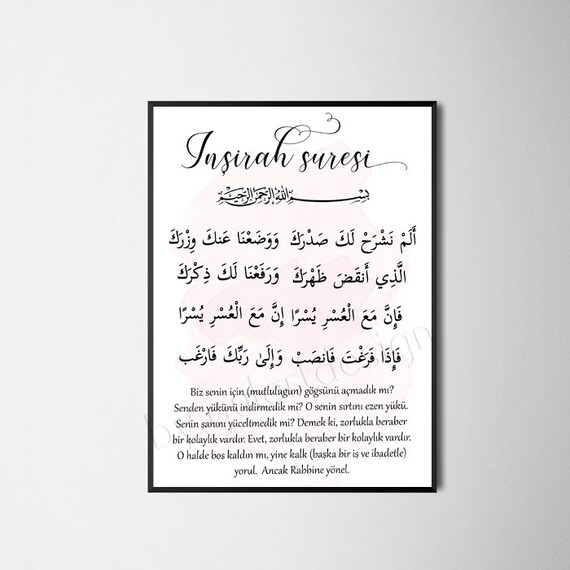 Inşirah suresi
بسم الله الرحمن الرحيم
أَلَمْ نَشْرَحْ لَكَ صَدْرَكَ وَوَضَعْنَا عَنكَ وِزْرَكَ
الَّذِي أَنقَضَ ظَهْرَكَ وَرَفَعْنَا لَكَ ذِكْرَكَ
فَإِنَّ مَعَ الْعُسْرِ يُسْرًا إِنَّ مَعَ الْعُسْرِ يُسْرًا
فَإِذَا فَرَغْتَ فَانصَبْ وَإِلَىٰ رَبِّكَ فَارْغَب
Biz senin için (mutlulugun) gögsünü açmadik mı?
Senden yükünü indirmedik mi? O senin sırtını ezen yükü.
Senin şanını yüceltmedik mi? Demek ki, zorlukla beraber
bir kolaylık vardır. Evet, zorlukla beraber bir kolaylık vardır.
O halde bos kaldın mı, yine kalk (başka bir is ve ibadetle)
yorul. Ancak Rabbine yönel.